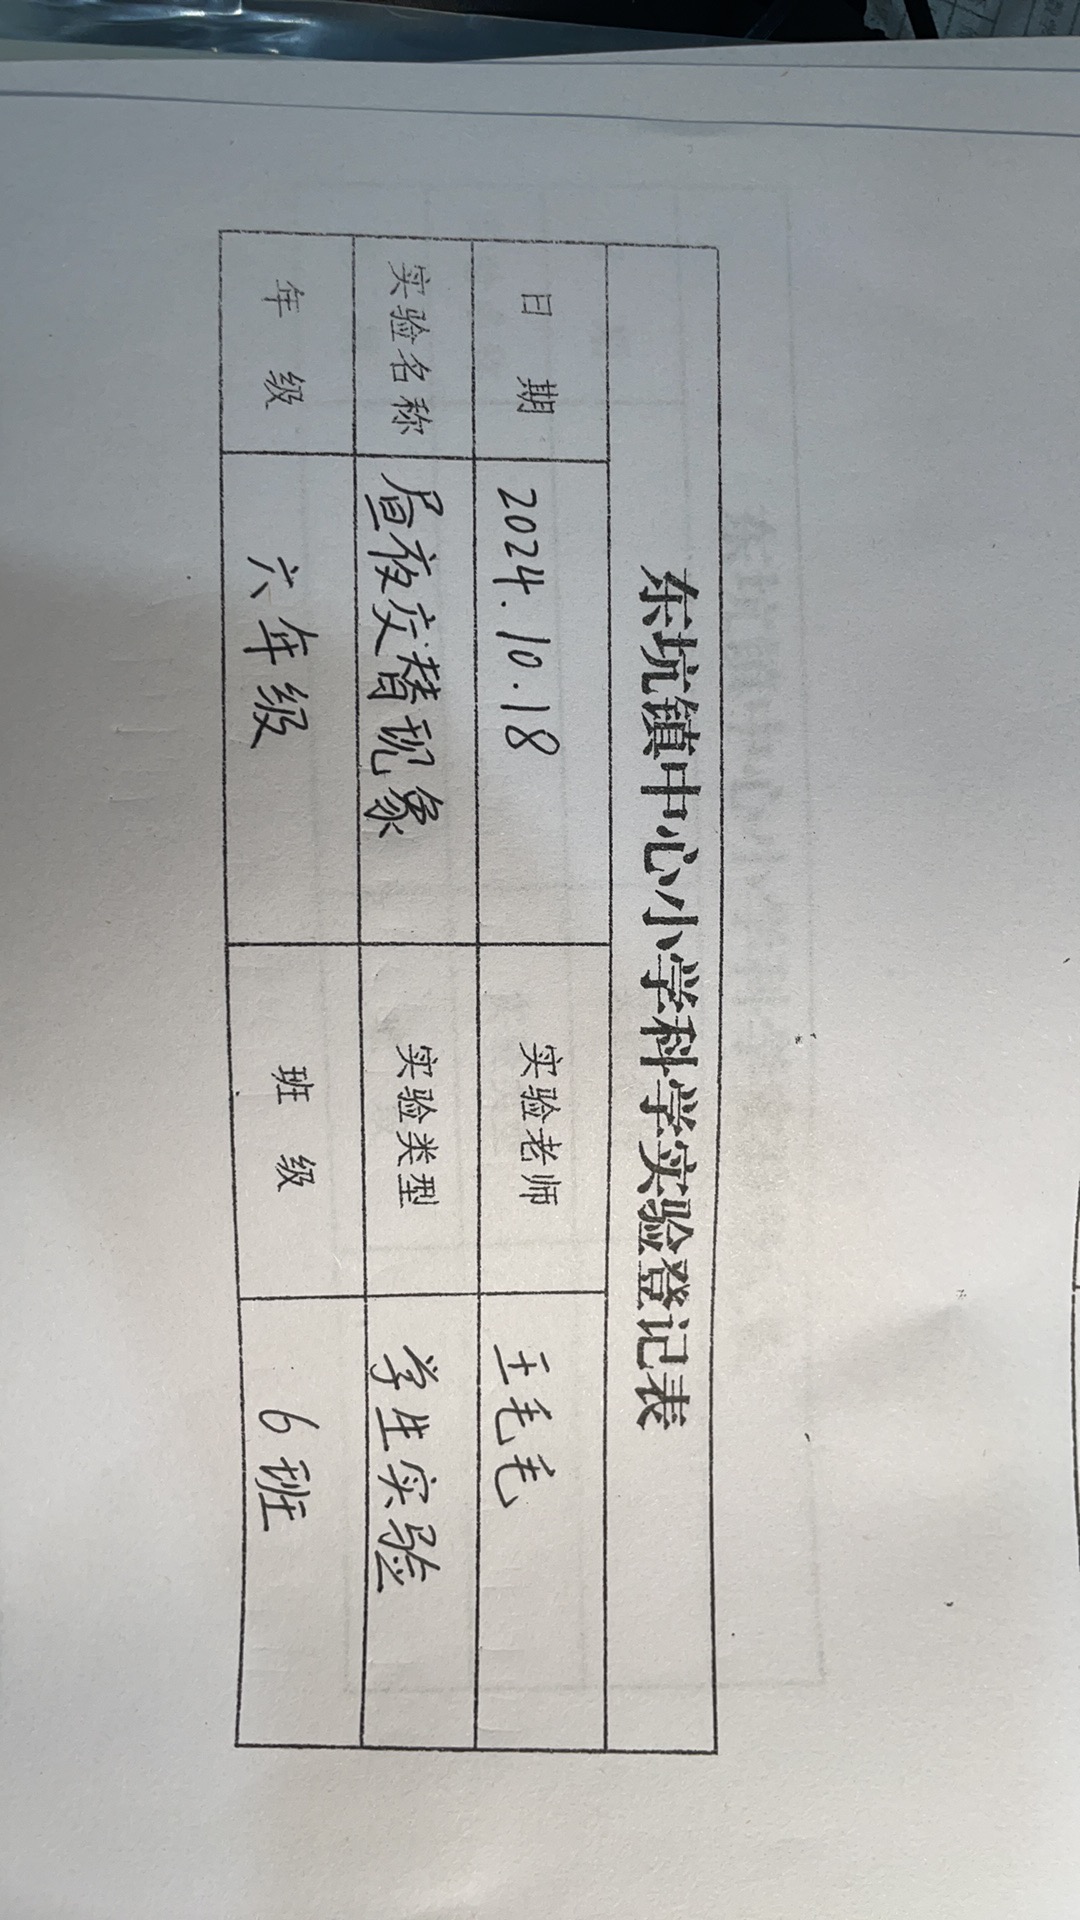 东坑镇中心小学科学实验登记表
日 期 2024.10.18 实验老师 王毛毛
实验名称 昼夜交替现象 实验类型 学生实验
年 级 六年级 班 级 6班